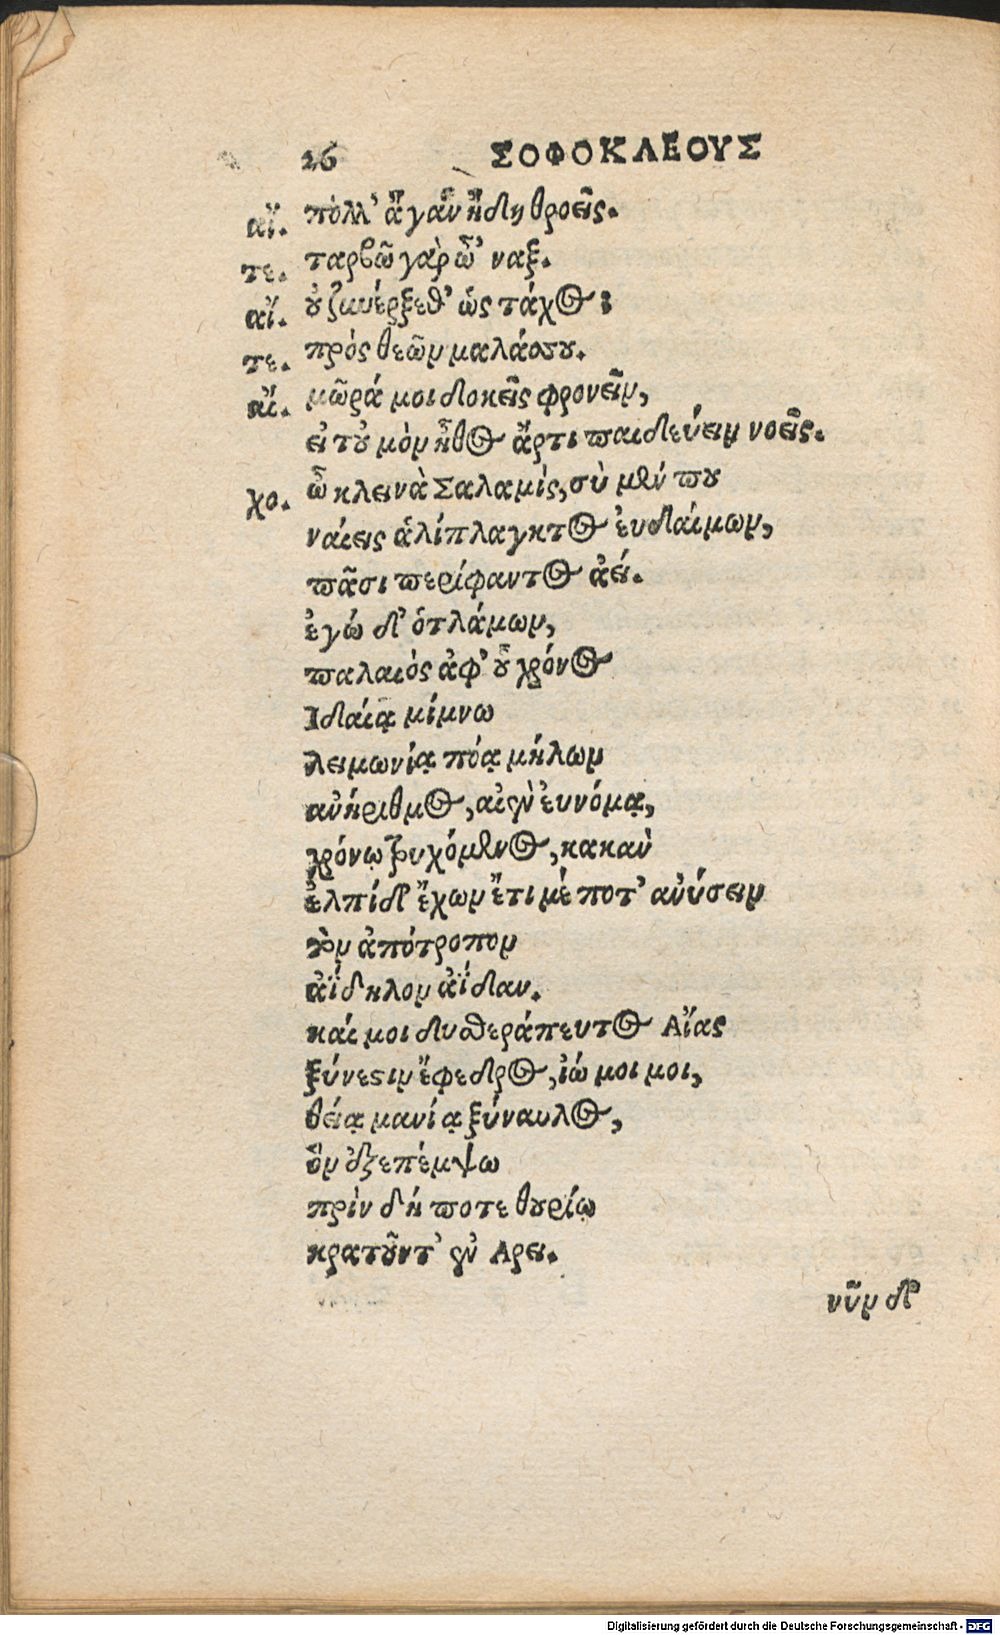 26 ΣΟΦΟΚΛΕΟΥΣ
αἴ. πόλλ' ἄγαν ἤδη θροεῖς.
τε. ταρβῶ γὰρ ὦ' ναξ.
αἴ. οὐ ξυνέρξεθ' ὡς τάχος;
τε. πρὸς θεῶν μαλάσου.
αἴ. μῶρά μοι δοκεῖς φρονεῖν,
εἰ τοὐμὸν ἦθος ἄρτι παιδεύειν νοεῖς.
χο. ὦ κλεινὰ Σαλαμὶς, σὺ μέν που
ναίεις ἁλίπλαγκτος ἐυδαίμων,
πᾶσι περίφαντος ἀεί.
ἐγώ δ' ὁ τλάμων,
παλαιὸς ἀφ' οὗ χρόνος
Ιδαίᾳ μίμνω
λειμωνίᾳ πόᾳ μήλων
ἀνήριθμος, αἰὲν ἐυνόμᾳ,
χρόνῳ τρυχόμενος, κακὰν
ἐλπίδ' ἔχων ἔτι μέ ποτ' ἀνύσειν
τὸν ἀπότροπον
ἀΐδηλον ἀΐδαν.
καί μοι δυσθεράπευτος Αἴας
ξύνεστιν ἔφεδρος, ἰώ μοι μοι,
θείᾳ μανίᾳ ξύναυλος,
ὃν ἐξεπέμψω
πρὶν δή ποτε θουρίῳ
κρατοῦντ' ἐν Αρει.
νῦν δ'
Digitalisierung gefördert durch die Deutsche Forschungsgemeinschaft - DFG